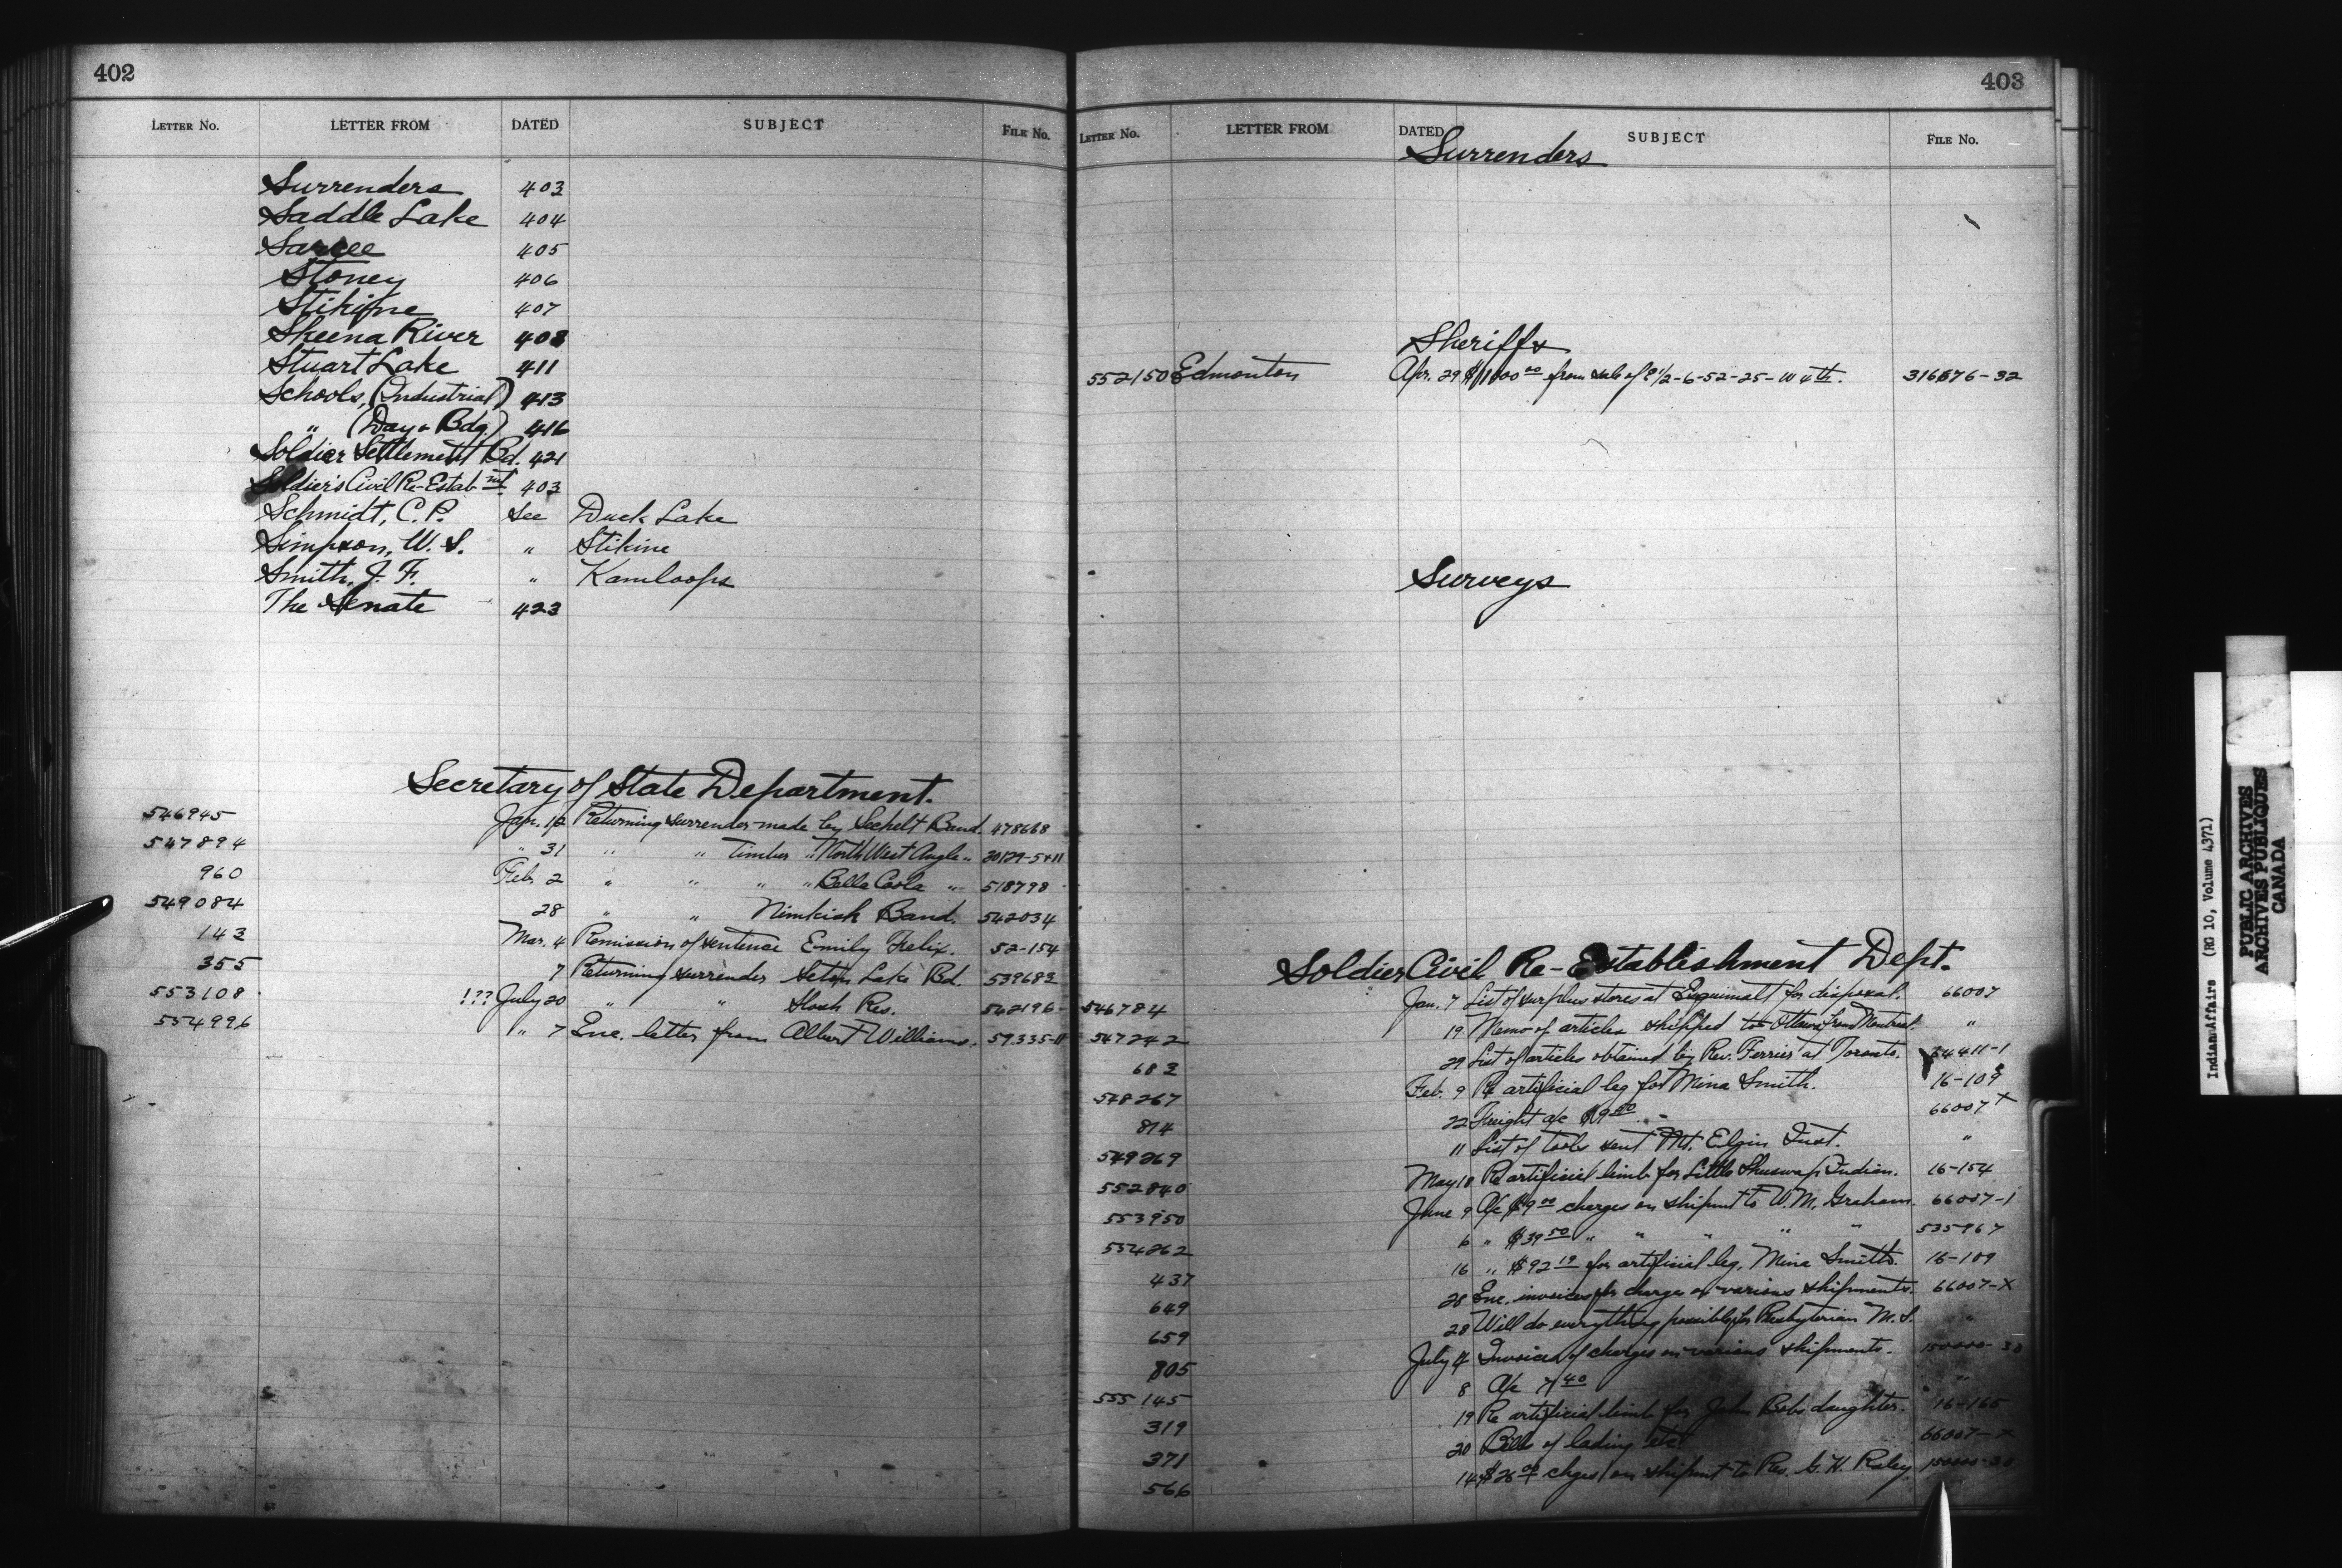 402
LETTER No. LETTER FROM DATED SUBJECT FILE No.
Surrenders 403
Saddle Lake 404
Sarcee 405
Stoney 406
Stikine 407
Skeena River 408
Stuart Lake 411
Schools, (Industrial) 413
" (Day & Bdg.) 416
Soldier Settlement Bd. 421
Soldier's Civil Re-Estab-mt. 403
Schmidt, C. P. See Duck Lake
Simpson, W. S. " Stikine
Smith, J. F. " Kamloops
The Senate 423
Secretary of State Department.
546945 Jan. 12 Returning surrender made by Sechelt Band. 478668
547894 " 31 " " Timber " North West Angle " 30129-5411
960 Feb. 2 " " " " Bella Coola " 518798
549084 28 " " Nimkish Band. 542034
143 Mar. 4 Remission of sentence Emily Felix. 52-154
355 7 Returning surrender Seton Lake Bd. 539682
553108 !?? July 20 " " Slosh Res. 542196
554996 " 7 Enc. letter from Albert Williams. 59335-11
403
LETTER No. LETTER FROM DATED SUBJECT FILE No.
Surrenders
Sheriffs
552150 Edmonton Apr. 29 from sale of E 1/2-6-52-25-W 4th. 316676-32
Surveys
Soldier Civil Re-Establishment Dept.
546784 Jan. 7 List of surplus stores at Esquimalt for disposal. 66007
547242 19 Memo of articles shipped to Ottawa from Montreal. "
683 29 List of articles obtained by Rev. Ferrier at Toronto. 54411-1
548267 Feb. 9 Re artificial leg for Mina Smith. 16-109
814 22 Freight a/c $9.50 66007 X
549269 11 List of tools sent Mt. Elgin Inst. "
552840 May 18 Re artificial limb for Little Shuswap Indian. 16-154
553950 June 9 A/c $9.00 charges on shipmt to W. M. Graham. 66007-1
554262 6 " $39.50 " " " " " 535967
437 16 " $92.19 for artificial leg, Mina Smith. 16-109
649 28 Enc. invoices for charge on various shipments. 66007-X
659 28 Will do everything possible for Presbyterian M. S. "
805 July 4 Invoices of charges on various shipments. 150000-30
555145 8 A/c 7.40 "
319 19 Re artificial limb for John Bobs daughter. 16-165
371 20 Bills of lading etc. 66007-X
566 14 $26.00 chges on shipmt to Rev. G. H. Raley. 150000-30
Indian Affairs (RG 10, Volume 4371)
PUBLIC ARCHIVES
ARCHIVES PUBLIQUES
CANADA